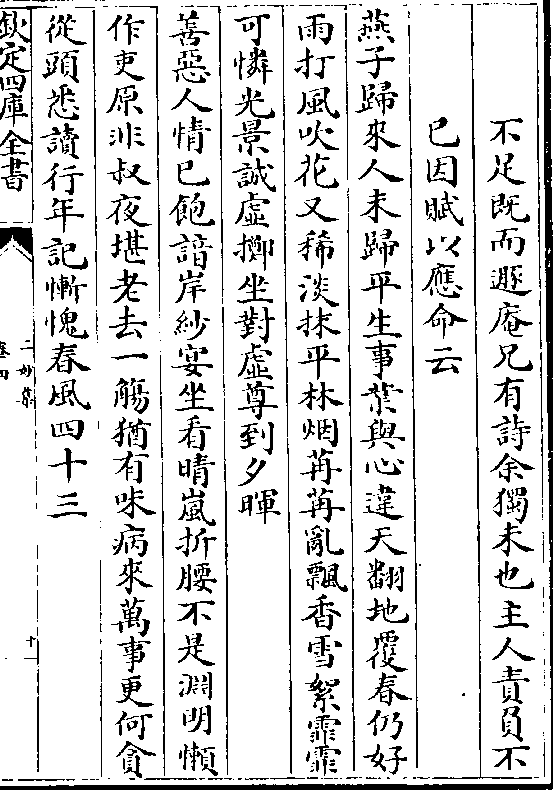 不足既而遯庵兄有詩余獨未也主人責負不
已因賦以應命云
燕子歸來人未歸平生事業與心違天翻地覆春仍好
雨打風吹花又稀淡抹平林烟苒苒亂飄香雪絮霏霏
可憐光景誠虛擲坐對虛尊到夕暉
善惡人情已飽諳岸紗宴坐看晴嵐折腰不是淵明懶
作吏原非叔夜堪老去一觴猶有味病來萬事更何貪
從頭悉讀行年記慚愧春風四十三
欽定四庫全書
二妙集
卷四
十一